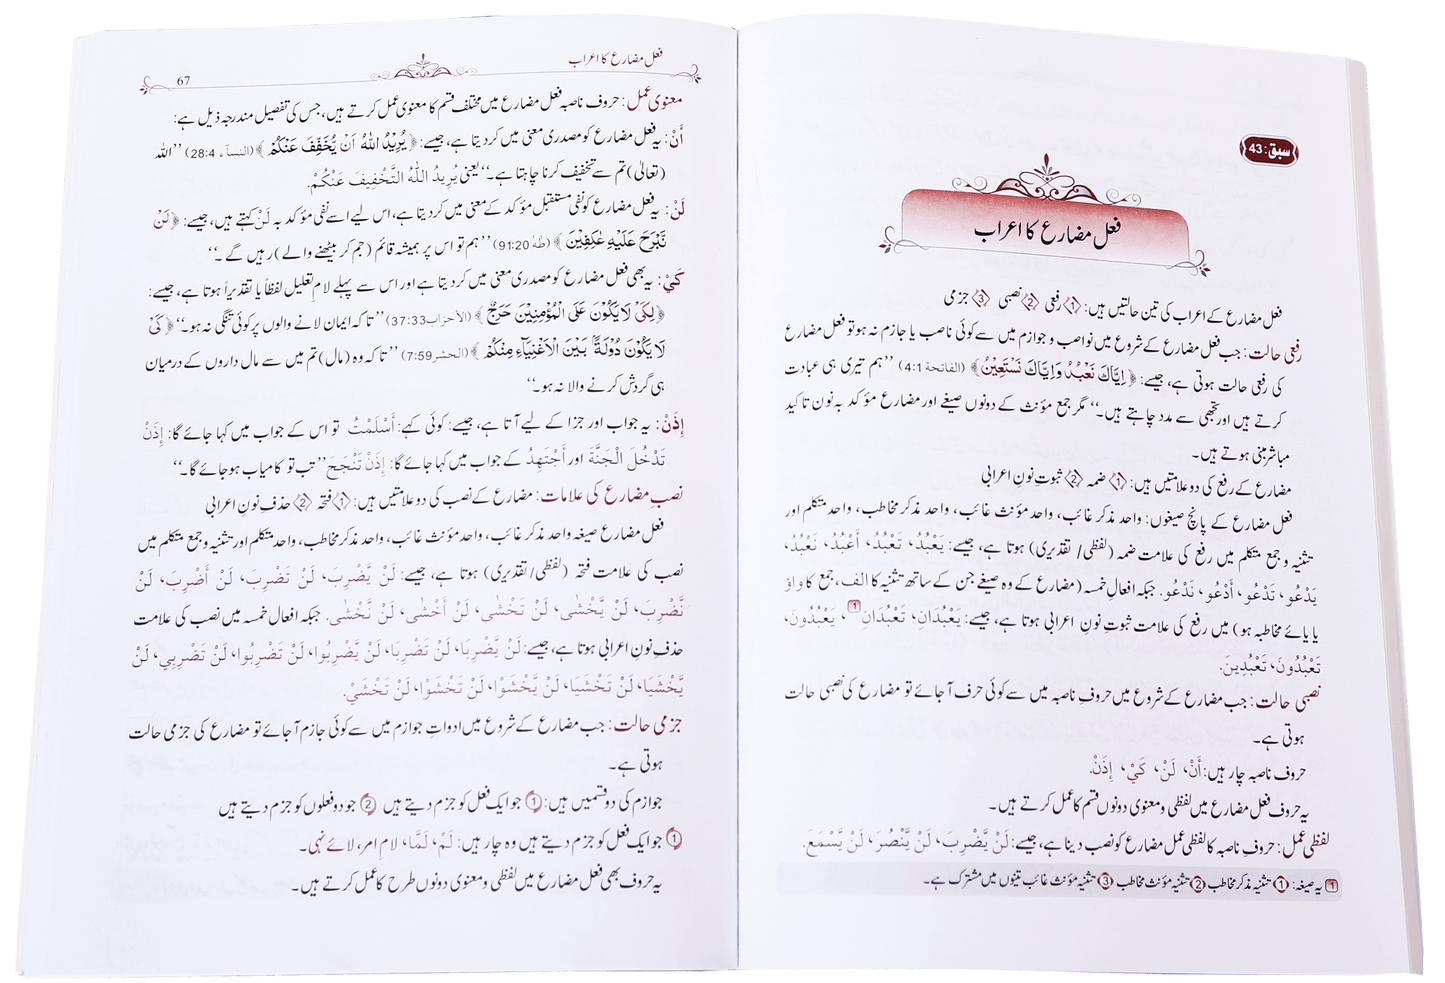 سبق: 43
فعل مضارع کا اعراب
فعل مضارع کے اعراب کی تین حالتیں ہیں: 1 رفعی 2 نصبی 3 جزمی
رفعی حالت: جب فعل مضارع کے شروع میں نواصب و جوازم میں سے کوئی ناصب یا جازم نہ ہو تو فعل مضارع
کی رفعی حالت ہوتی ہے، جیسے: ﴿اِيَّاكَ نَعْبُدُ وَاِيَّاكَ نَسْتَعِيْنُ﴾ (الفاتحة 4:1) ’’ہم تیری ہی عبادت
کرتے ہیں اور تجھی سے مدد چاہتے ہیں۔‘‘ مگر جمع مؤنث کے دونوں صیغے اور مضارع مؤکد بہ نون تاکید
مباشر مبنی ہوتے ہیں۔
مضارع کے رفع کی دو علامتیں ہیں: 1 ضمہ 2 ثبوتِ نونِ اعرابی
فعل مضارع کے پانچ صیغوں: واحد مذکر غائب، واحد مؤنث غائب، واحد مذکر مخاطب، واحد متکلم اور
تثنیہ و جمع متکلم میں رفع کی علامت ضمہ (لفظی/ تقدیری) ہوتا ہے، جیسے: يَعْبُدُ، تَعْبُدُ، أَعْبُدُ، نَعْبُدُ،
يَدْعُو، تَدْعُو، أَدْعُو، نَدْعُو. جبکہ افعالِ خمسہ (مضارع کے وہ صیغے جن کے ساتھ تثنیہ کا الف، جمع کا واؤ
یا یائے مخاطبہ ہو) میں رفع کی علامت ثبوتِ نونِ اعرابی ہوتا ہے، جیسے: يَعْبُدَانِ، تَعْبُدَانِ1، يَعْبُدُونَ،
تَعْبُدُونَ، تَعْبُدِينَ.
نصبی حالت: جب مضارع کے شروع میں حروفِ ناصبہ میں سے کوئی حرف آ جائے تو مضارع کی نصبی حالت
ہوتی ہے۔
حروف ناصبہ چار ہیں: أَنْ، لَنْ، كَيْ، إِذَنْ.
یہ حروف فعل مضارع میں لفظی و معنوی دونوں قسم کا عمل کرتے ہیں۔
لفظی عمل: حروفِ ناصبہ کا لفظی عمل مضارع کو نصب دینا ہے، جیسے: لَنْ يَّضْرِبَ، لَنْ يَّنْصُرَ، لَنْ يَّسْمَعَ.
1 یہ صیغہ: 1 تثنیہ مذکر مخاطب 2 تثنیہ مؤنث مخاطب 3 تثنیہ مؤنث غائب تینوں میں مشترک ہے۔
فعل مضارع کا اعراب
67
معنوی عمل: حروف ناصبہ فعل مضارع میں مختلف قسم کا معنوی عمل کرتے ہیں، جس کی تفصیل مندرجہ ذیل ہے:
أَنْ: یہ فعل مضارع کو مصدری معنی میں کر دیتا ہے، جیسے: ﴿يُرِيْدُ اللّٰهُ اَنْ يُّخَفِّفَ عَنْكُمْ﴾ (النسآء 28:4) ’’اللہ
(تعالیٰ) تم سے تخفیف کرنا چاہتا ہے۔‘‘ یعنی يُرِيدُ اللّٰهُ التَّخْفِيفَ عَنْكُمْ.
لَنْ: یہ فعل مضارع کو نفی مستقبل مؤکد کے معنی میں کر دیتا ہے، اس لیے اسے نفی مؤکد بہ لَنْ کہتے ہیں، جیسے: ﴿لَنْ
نَّبْرَحَ عَلَيْهِ عٰكِفِيْنَ﴾ (طٰهٰ 91:20) ’’ہم تو اس پر ہمیشہ قائم (جم کر بیٹھنے والے) رہیں گے۔‘‘
كَيْ: یہ بھی فعل مضارع کو مصدری معنی میں کر دیتا ہے اور اس سے پہلے لامِ تعلیل لفظاً یا تقدیراً ہوتا ہے، جیسے:
﴿لِكَيْ لَا يَكُوْنَ عَلَى الْمُؤْمِنِيْنَ حَرَجٌ﴾ (الأحزاب 37:33) ’’تاکہ ایمان لانے والوں پر کوئی تنگی نہ ہو۔‘‘ ﴿كَيْ
لَا يَكُوْنَ دُوْلَةًۢ بَيْنَ الْاَغْنِيَآءِ مِنْكُمْ﴾ (الحشر 7:59) ’’تاکہ وہ (مال) تم میں سے مال داروں کے درمیان
ہی گردش کرنے والا نہ ہو۔‘‘
إِذَنْ: یہ جواب اور جزا کے لیے آتا ہے، جیسے: کوئی کہے: أَسْلَمْتُ تو اس کے جواب میں کہا جائے گا: إِذَنْ
تَدْخُلَ الْجَنَّةَ اور أَجْتَهِدُ کے جواب میں کہا جائے گا: إِذَنْ تَنْجَحَ ’’تب تو کامیاب ہو جائے گا۔‘‘
نصبِ مضارع کی علامات: مضارع کے نصب کی دو علامتیں ہیں: 1 فتحہ 2 حذفِ نونِ اعرابی
فعل مضارع صیغہ واحد مذکر غائب، واحد مؤنث غائب، واحد مذکر مخاطب، واحد متکلم اور تثنیہ و جمع متکلم میں
نصب کی علامت فتحہ (لفظی/ تقدیری) ہوتا ہے، جیسے: لَنْ يَّضْرِبَ، لَنْ تَضْرِبَ، لَنْ أَضْرِبَ، لَنْ
نَّضْرِبَ، لَنْ يَّخْشٰى، لَنْ تَخْشٰى، لَنْ أَخْشٰى، لَنْ نَّخْشٰى. جبکہ افعال خمسہ میں نصب کی علامت
حذفِ نونِ اعرابی ہوتا ہے، جیسے: لَنْ يَّضْرِبَا، لَنْ تَضْرِبَا، لَنْ يَّضْرِبُوا، لَنْ تَضْرِبُوا، لَنْ تَضْرِبِي، لَنْ
يَّخْشَيَا، لَنْ تَخْشَيَا، لَنْ يَّخْشَوْا، لَنْ تَخْشَوْا، لَنْ تَخْشَيْ.
جزمی حالت: جب مضارع کے شروع میں ادواتِ جوازم میں سے کوئی جازم آ جائے تو مضارع کی جزمی حالت
ہوتی ہے۔
جوازم کی دو قسمیں ہیں: 1 جو ایک فعل کو جزم دیتے ہیں 2 جو دو فعلوں کو جزم دیتے ہیں
1 جو ایک فعل کو جزم دیتے ہیں وہ چار ہیں: لَمْ، لَمَّا، لامِ امر، لائے نہی۔
یہ حروف بھی فعل مضارع میں لفظی و معنوی دونوں طرح کا عمل کرتے ہیں۔